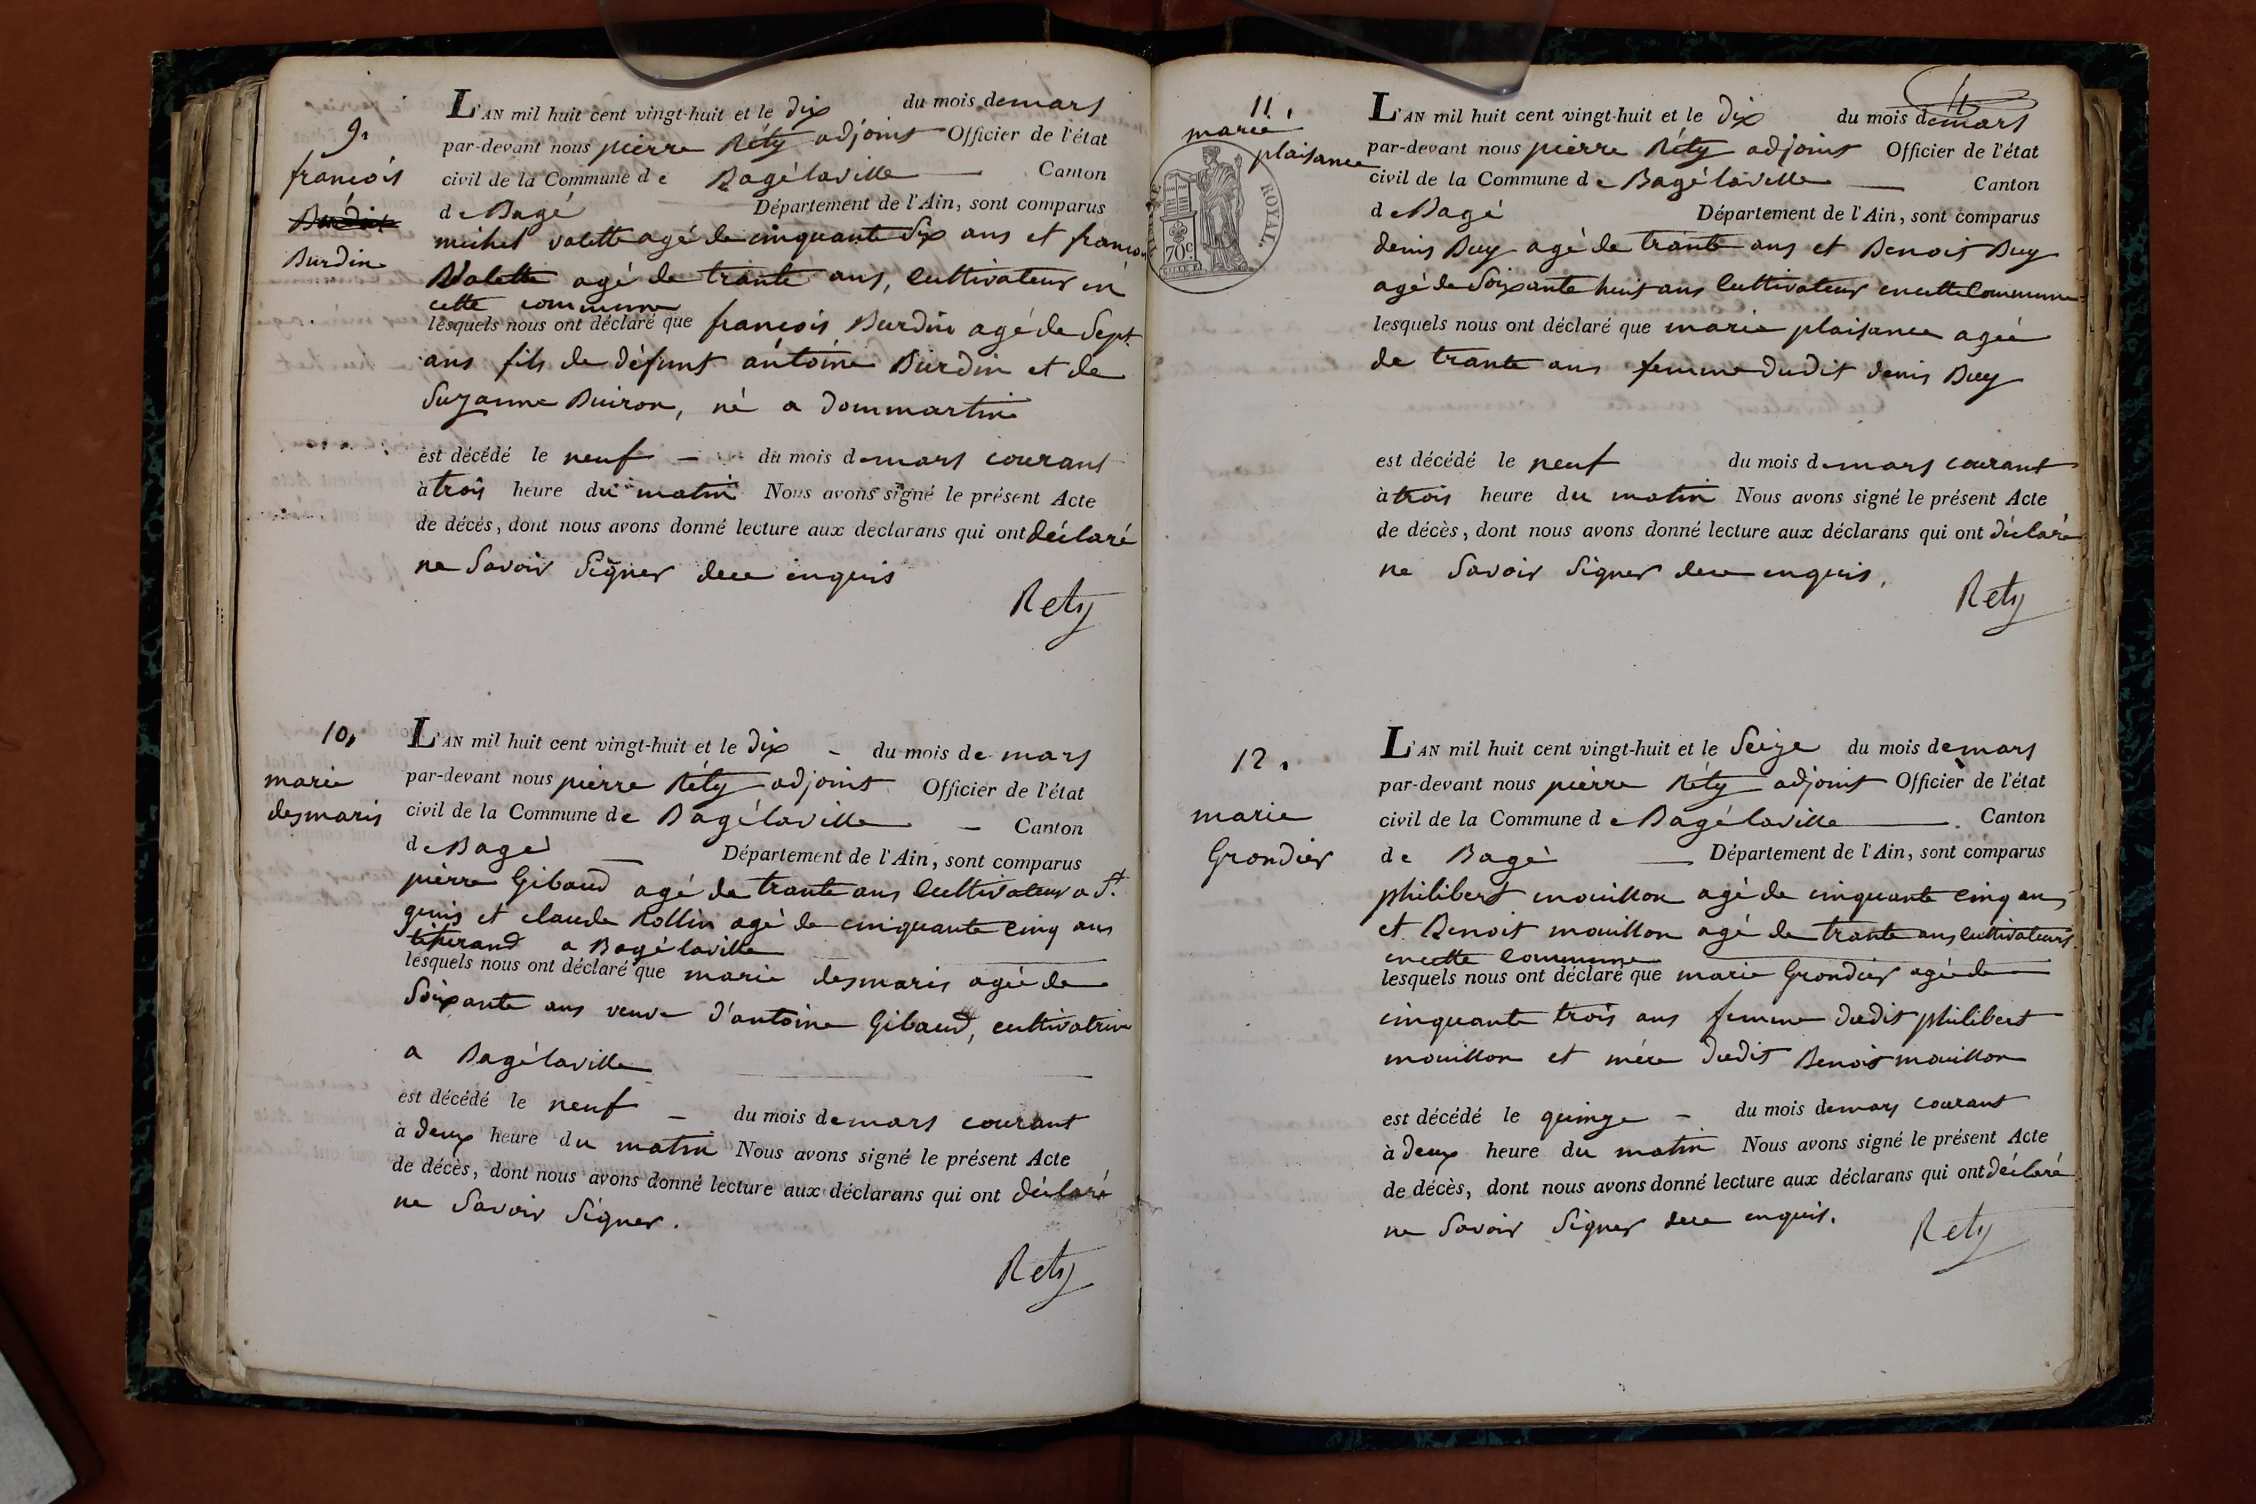 9.
françois
Burdin
L'AN mil huit cent vingt-huit et le dix du mois de mars
par-devant nous pierre Réty adjoint Officier de l'état
civil de la Commune de Bagélaville Canton
de Bagé Département de l'Ain, sont comparus
michel valette agé de cinquante Six ans et françois
Valette agé de trante ans, Cultivateur en
cette commune
lesquels nous ont déclaré que françois Burdin agé de Sept
ans fils de défunt antoine Burdin et de
Suzanne Buiron, né a dommartin
est décédé le neuf du mois de mars courant
à trois heure du matin Nous avons signé le présent Acte
de décès, dont nous avons donné lecture aux déclarans qui ont déclaré
ne Savoir Signer de ce enquis
Rety
10.
marie
desmaris
L'AN mil huit cent vingt-huit et le dix du mois de mars
par-devant nous pierre Réty adjoint Officier de l'état
civil de la Commune de Bagélaville Canton
de Bagé Département de l'Ain, sont comparus
pierre Gibaud agé de trante ans Cultivateur a St.
genis et claude Rollin agé de cinquante cinq ans
tisserand a Bagélaville
lesquels nous ont déclaré que marie desmaris agée de
Soixante ans veuve d'antoine Gibaud, cultivatrice
a Bagélaville
est décédé le neuf du mois de mars courant
à deux heure du matin Nous avons signé le présent Acte
de décès, dont nous avons donné lecture aux déclarans qui ont déclaré
ne Savoir Signer.
Rety
11.
marie
plaisance
ROYAL.
70c
L'AN mil huit cent vingt-huit et le Dix du mois de mars
par-devant nous pierre Réty adjoint Officier de l'état
civil de la Commune de Bagélaville Canton
de Bagé Département de l'Ain, sont comparus
denis Buy agé de trante ans et Benoit Buy
agé de Soixante huit ans Cultivateur en cette Commune
lesquels nous ont déclaré que marie plaisance agée
de trante ans femme dudit denis Buy
est décédé le neuf du mois de mars courant
à trois heure du matin Nous avons signé le présent Acte
de décès, dont nous avons donné lecture aux déclarans qui ont déclaré
ne Savoir Signer de ce enquis.
Rety
12.
marie
Grondier
L'AN mil huit cent vingt-huit et le Seize du mois de mars
par-devant nous pierre Réty adjoint Officier de l'état
civil de la Commune de Bagélaville Canton
de Bagé Département de l'Ain, sont comparus
philibert mouillon agé de cinquante cinq ans
et Benoit mouillon agé de trante ans cultivateurs
en cette Commune
lesquels nous ont déclaré que marie Grondier agée de
cinquante trois ans femme dudit philibert
mouillon et mère dudit Benoit mouillon
est décédé le quinze du mois de mars courant
à deux heure du matin Nous avons signé le présent Acte
de décès, dont nous avons donné lecture aux déclarans qui ont déclaré
ne Savoir Signer de ce enquis.
Rety